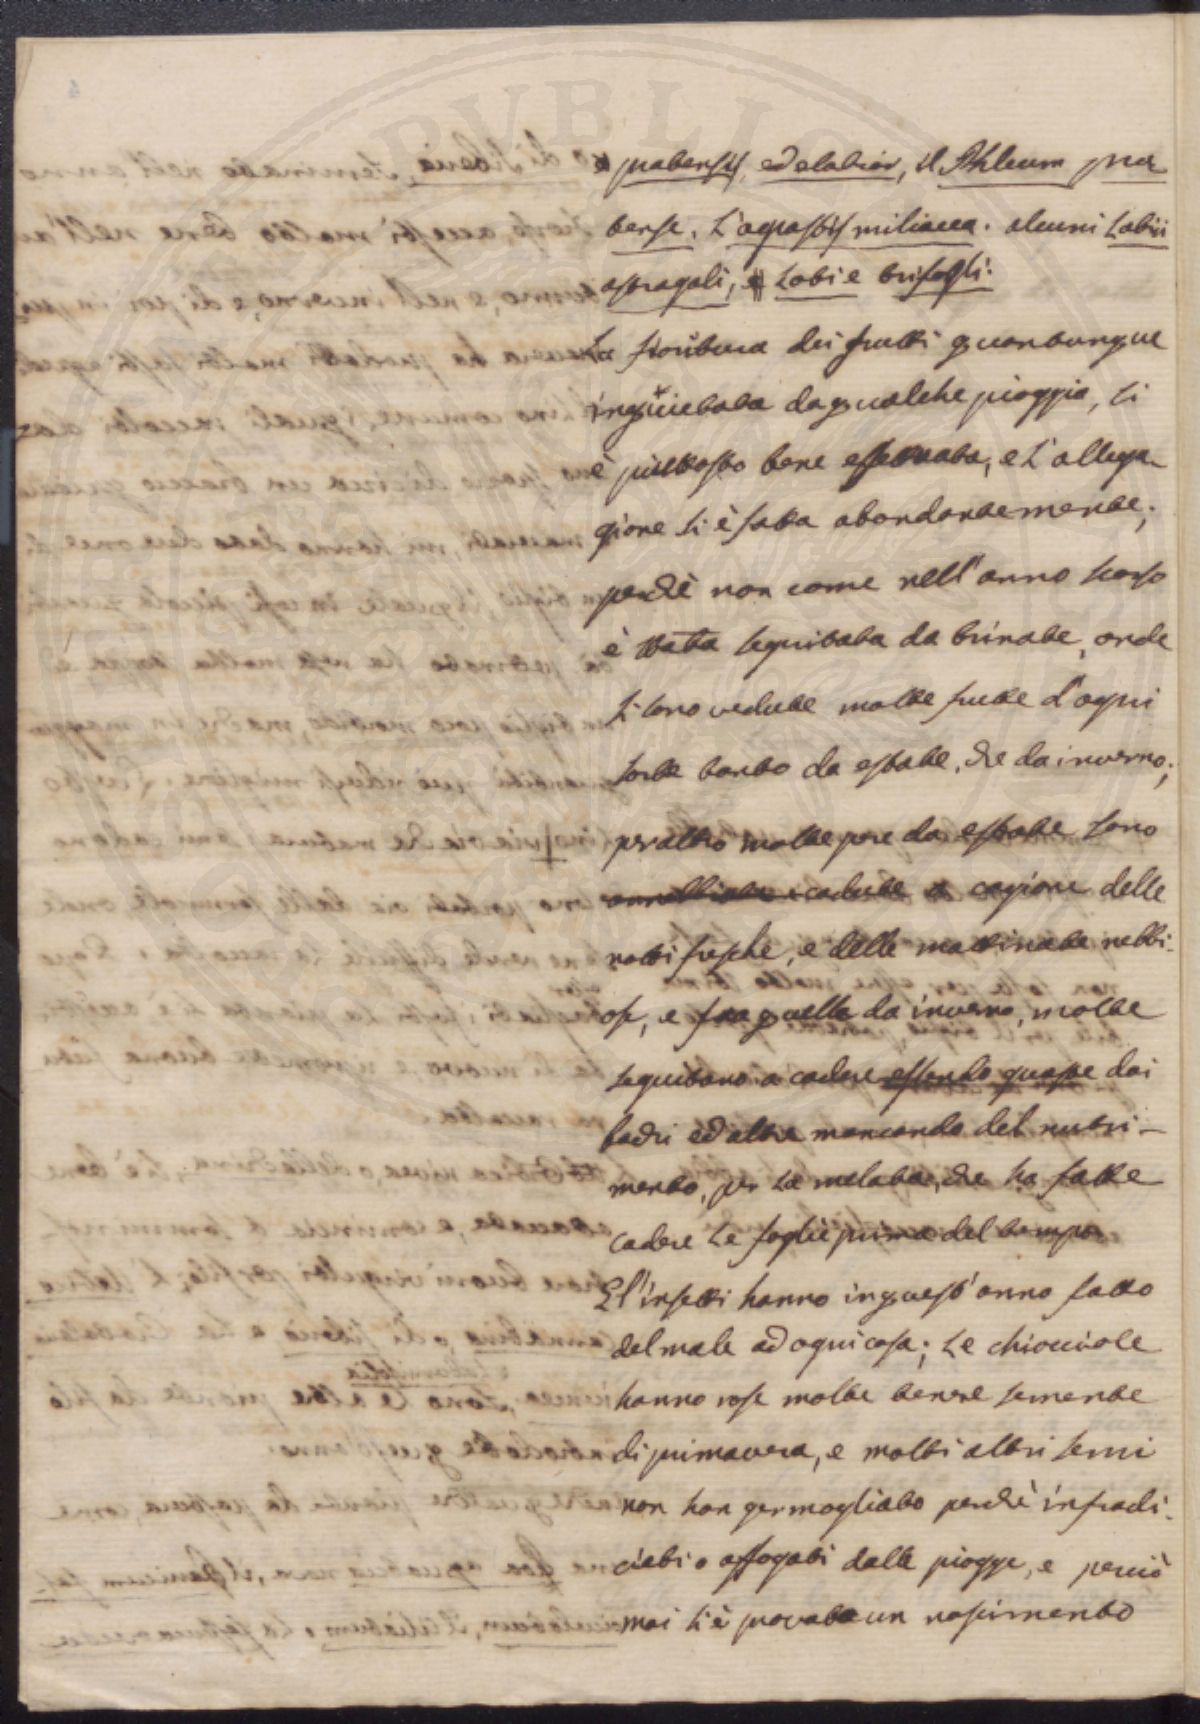 e pratensis, ed elatior, il Phleum pra
tense, L'agrostis miliacea. alcuni Latii
astragali, e Loti e trifogli.
La fioritura dei frutti quantunque
inquietata da qualche pioggia, si
è piuttosto bene effettuata, e L'allega-
gione si è fatta abondantemente;
perchè non come nell'anno scorso
è stata seguitata da brinate, onde
si sono vedute molte frutte d'ogni
sorte tanto da estate, che da inverno;
peraltro molte pere da estate sono
cadute a cagione delle
notti fresche, e delle mattinate nebbi-
ose, e fra quelle da inverno, molte
seguitano a cadere essendo guaste dai
bachi ed altre mancando del nutri-
mento, per La melata, che ha fatte
cadere Le foglie prima del tempo
Gl'insetti hanno in quest'anno fatto
del male ad ogni cosa; Le chiocciole
hanno rose molte tenere semente
di primavera, e molti altri semi
non han germogliato perchè infradi-
ciati o affogati dalle piogge, e perciò
mai si è provato un nascimento